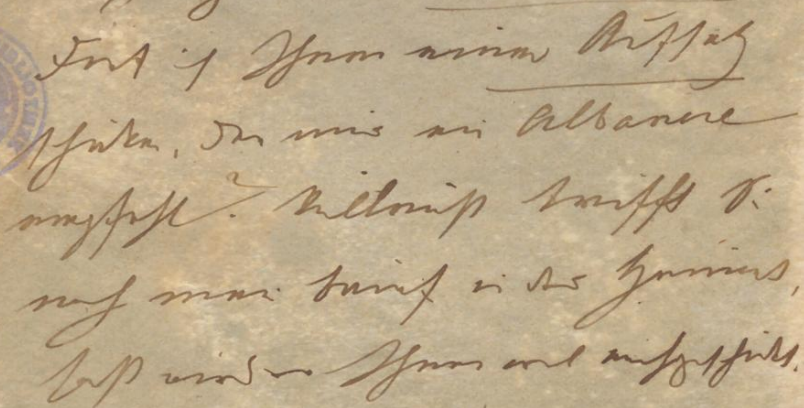 Darf ich Ihnen einen Aufsatz
schicken, den mir ein Albanese
empfahl? Vielleicht trifft Si
noch mein Brief in der Heimat,
sonst wird er Ihnen wol nachgeschickt.